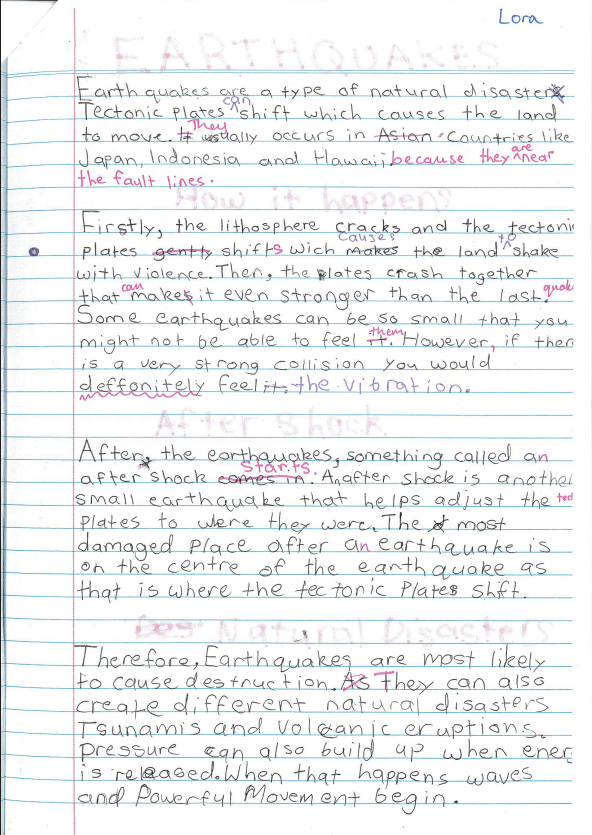 Lora
EARTHQUAKES
Earth quakes are a type of natural disaster
Tectonic plates can shift which causes the land
to move. They usually occurs in Asian Countries like
Japan, Indonesia and Hawaii because they are near
the fault lines.
How it happens
Firstly, the lithosphere cracks and the tectonic
plates gently shifts wich makes causes the land to shake
with violence. Then, the plates crash together
that can make it even stronger than the last. quak
Some earthquakes can be so small that you
might not be able to feel it. them However, if ther
is a very strong collision you would
deffonitely feel it. the vibration.
After Shock
After, the earthquakes, something called an
after shock comes in starts. An after shock is anothe
small earthquake that helps adjust the tec
plates to were they were. The most
damaged place after an earthquake is
on the centre of the earthquake as
that is where the tectonic Plates shft.
Des Natural Disasters
Therefore, Earthquakes are most likely
to cause destruction. As They can also
create different natural disasters
Tsunamis and Volcanic eruptions.
pressure can also build up when ener
is released. When that happens waves
and Powerful Movement begin.